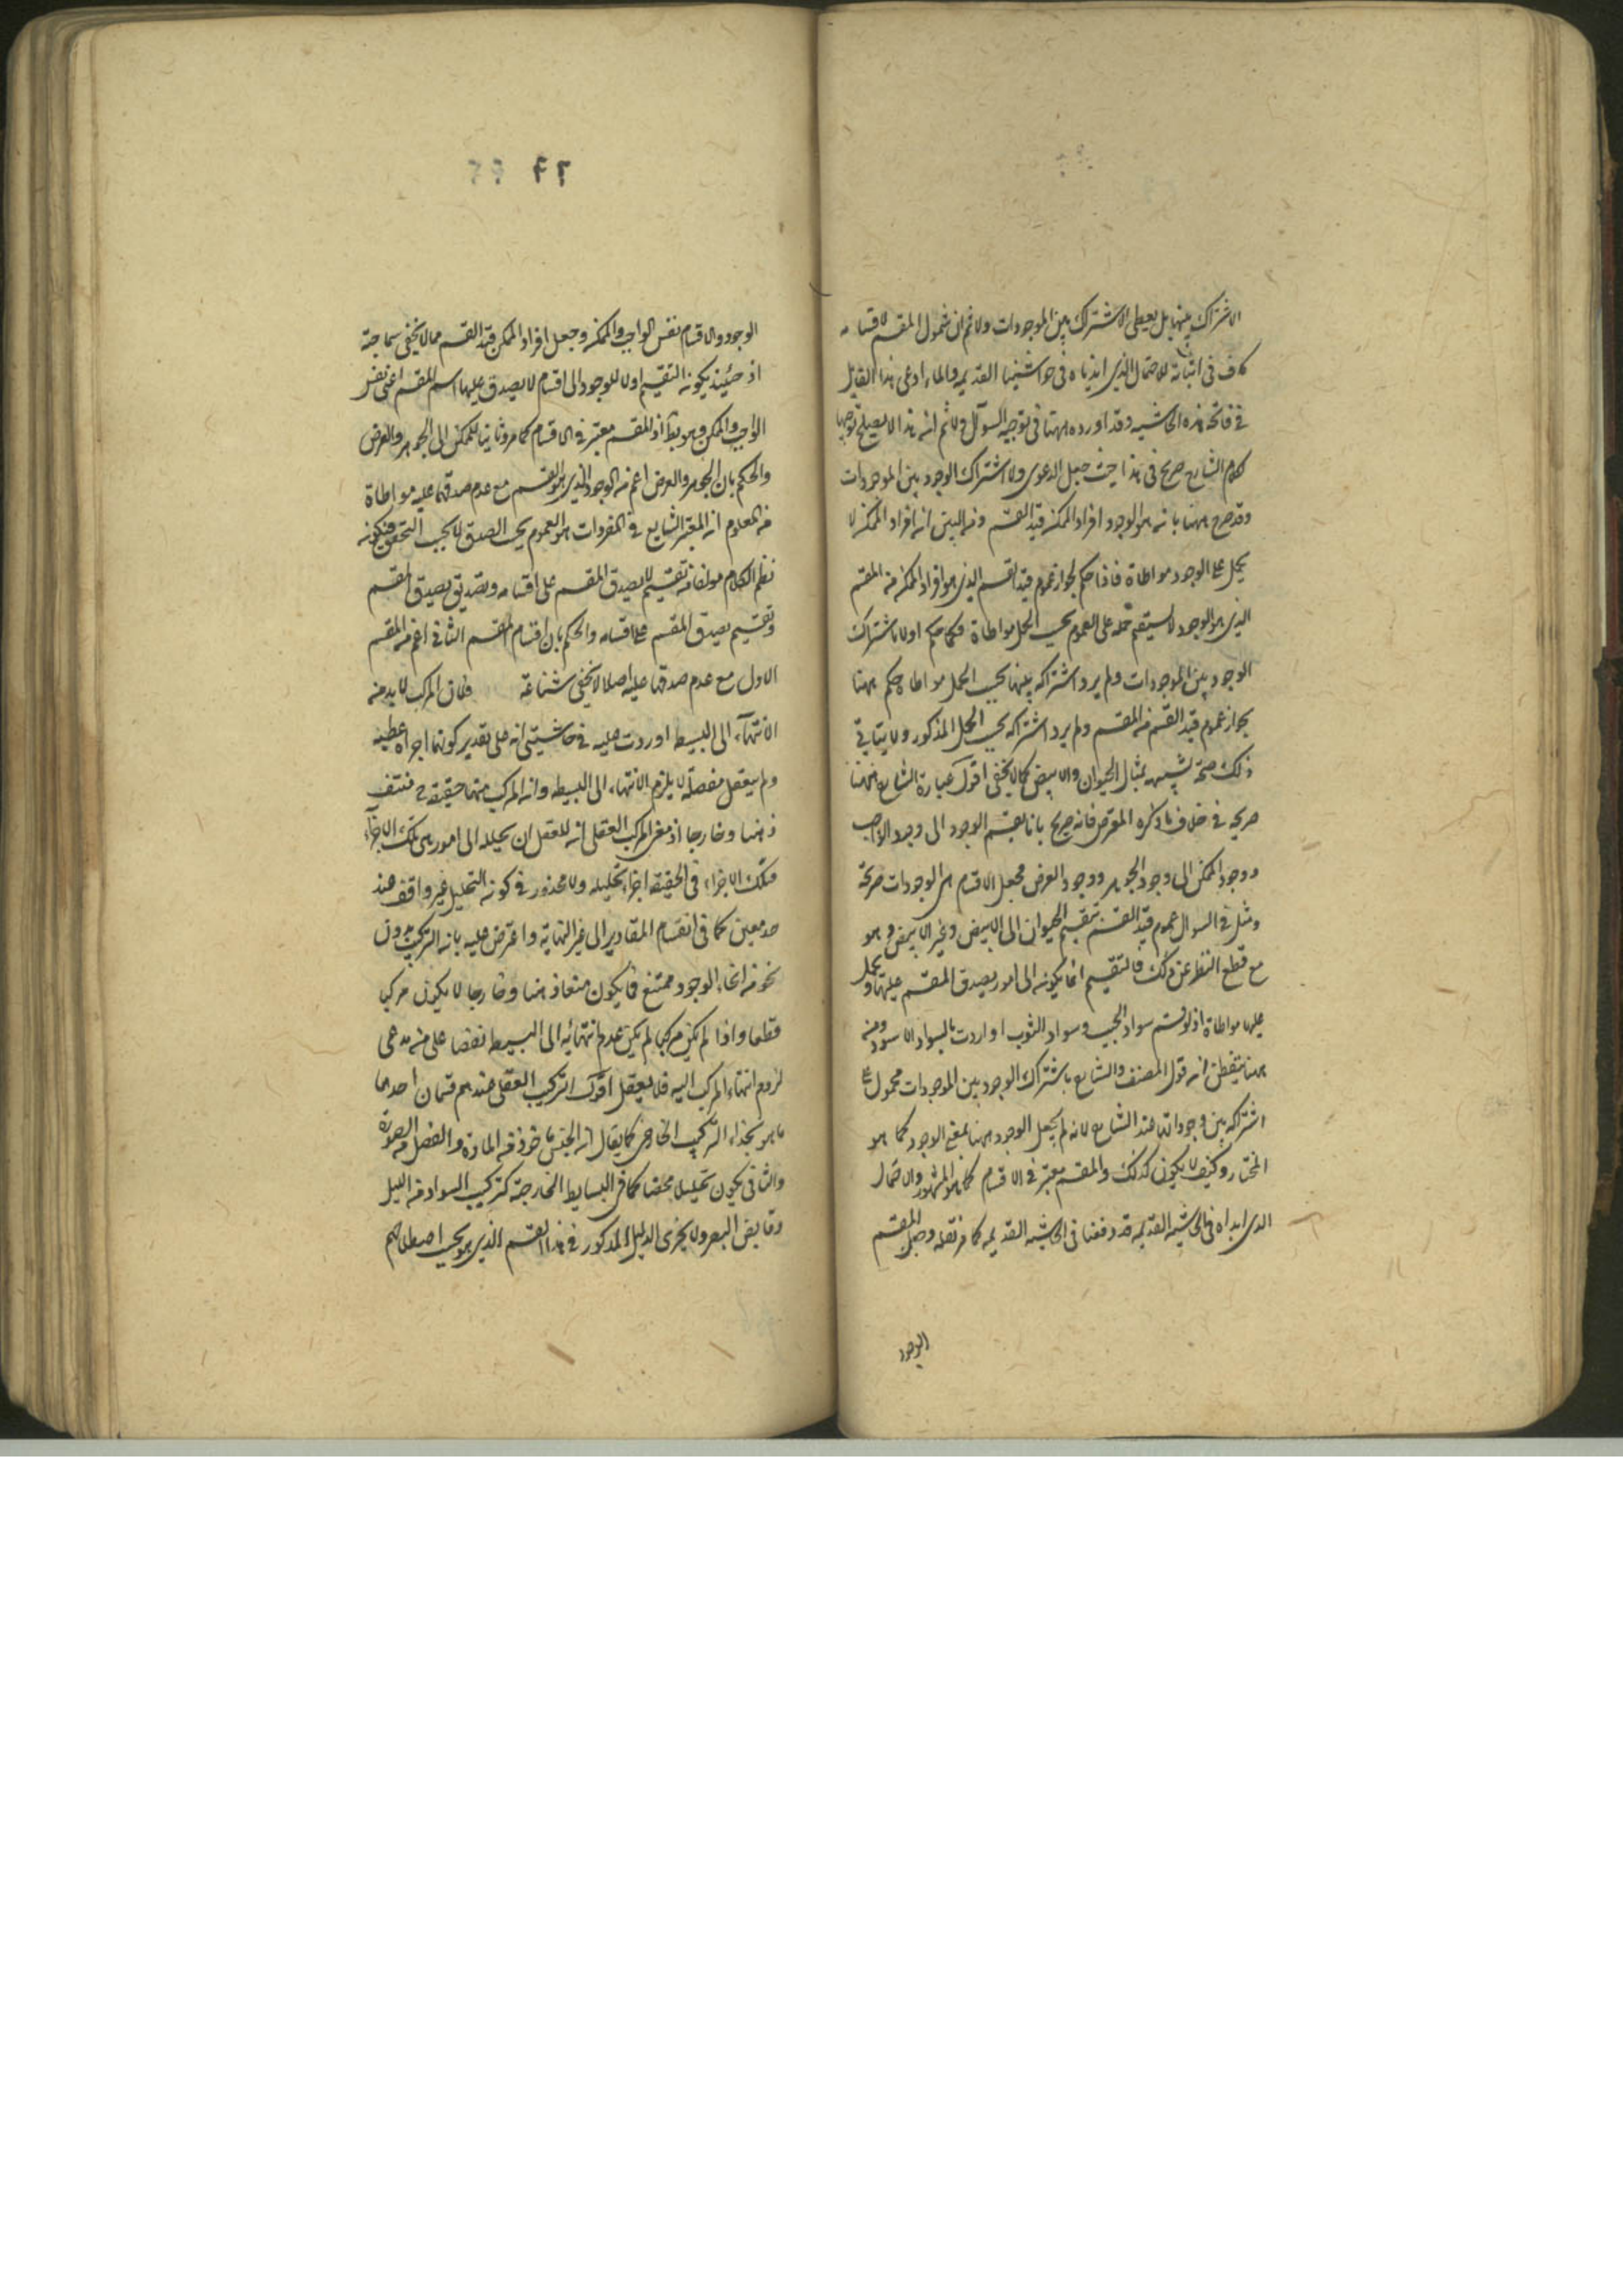 الاشتراك بينها بل يعطى الاشتراك بين الموجودات ولا ثم ان شمول المقسم لاقسامه
كاف فى اثباته للاحتمال الذى ابديناه فى حواشينا القديمة والماء ادعى هذا القايل
فى فاتحة هذه الحاشيه وقد اورده ههنا فى توجيه السؤال ولا ثم ان هذا لا يصلح توجيها
كلام الشارح صريح فى هذا حيث جعل الدعوى ولا اشتراك الوجود بين الموجودات
وقد صرح ههنا بانه هو الوجود افراد الممكن قيد القسم ومن البين ان افراد الممكن لا
يحمل على الوجود مواطاة فاذا حكم بجواز عموم قيد القسم الذى هو افراد الممكن من المقسم
الذى هو الوجود لا يستقيم حمله على العموم بحسب الحمل مواطاة فكما حكم اولا باشتراك
الوجود بين الموجودات ولم يرد اشتراكه بينها بحسب الحمل مواطاة حكم ههنا
بجواز عموم قيد القسم من المقسم ولم يرد اشتراكه بحسب الحمل المذكور ولا ينافى
ذلك صحة تشبيهه بمثال الحيوان والابيض كما لا يخفى اقول عبارة الشارح ههنا
صريحة فى خلاف ما ذكره المعترض فانه صريح بانا نقسم الوجود الى وجود الواجب
ووجود الممكن الى وجود الجوهر ووجود العرض فجعل الاقسام هى الوجودات صريحة
ومثل فى السؤال عموم قيد القسم بتقسيم الحيوان الى الابيض وغير الابيض وهو
مع قطع النظر عن ذلك فالتقسيم انما يكون الى امور يصدق المقسم عليها ويحمل
عليها مواطاة اذ لو قسم سواد الجيب وسواد الثوب او اردت بالسواد الاسود ومن
ههنا يتفطن ان قول المصنف والشارح باشتراك الوجود بين الموجودات محمول على
اشتراكه بين وجوداتها عند الشارح لانه لم يجعل الوجود ههنا بمعنى الموجود كما هو
المختار وكيف لا يكون كذلك والمقسم معتبر فى الاقسام كما هو المشهور والاحتمال
الذى ابداه فى الحاشية القديمة قد دفعنا فى الحاشية القديمة كما مر نقله وجعل المقسم
الوجود
٦٦
الوجود والاقسام نفس الواجب والممكن وجعل افراد الممكن قيد القسم مما لا يخفى سماجته
اذ حينئذ يكون التقسيم اولا للوجود الى اقسام لا يصدق عليها اسم المقسم اعنى نفس
الواجب والممكن وهو بط اذ المقسم معتبر فى الاقسام كما مر وثانيا للممكن الى الجوهر والعرض
والحكم بان الجوهر والعرض اعم من الوجود الذى هو المقسم مع عدم صدقهما عليه مواطاة
من المعلوم ان المعتبر الشايع فى المفردات هو العموم بحسب الصدق لا بحسب التحقق فيكون
نظم الكلام مولفا من تقسيم لا يصدق المقسم على اقسامه وتصديق يصدق المقسم
وتقسيم يصدق المقسم على اقسامه والحكم بان اقسام المقسم الثانى اعم من المقسم
الاول مع عدم صدقها عليه اصلا لا يخفى شناعته فان المركب لا بد من
الانتهاء الى البسيط اوردت عليه فى حاشيتى انه على تقدير كونها اجزاء عقلية
ولم يتعقل مفصلة لا يلزم الانتهاء الى البسيط وان المركب منها حقيقة ح منتف
ذهنا وخارجا اذ معنى المركب العقلى انه للعقل ان يحلله الى امور هى تلك الاجزاء
فتلك الاجزاء فى الحقيقة اجزاء تحليليه ولا محذور فى كون التحليل غير واقف عند
حد معين كما فى انقسام المقادير الى غير النهاية واعترض عليه بانه التركيب بدون
نحو من انحاء الوجود ممتنع فما يكون منتفا ذهنا وخارجا لا يكون مركبا
قطعا واذا لم يكن مركبا لم يكن عدم انتهائه الى البسيط نقضا على من يدعى
لزوم انتهاء المركب اليه فلا يعقل اقول التركيب العقلى عندهم قسمان احدهما
ما هو بحذاء التركيب الخارجى كما يقال ان الجنس ماخوذ من المادة والفصل من الصورة
والثانى يكون تحليلا محضا كما فى البسايط الخارجية كتركيب السواد من اللون
وقابض البصر ولا يجرى الدليل المذكور فى هذا القسم الذى هو بحسب اصطلاحهم